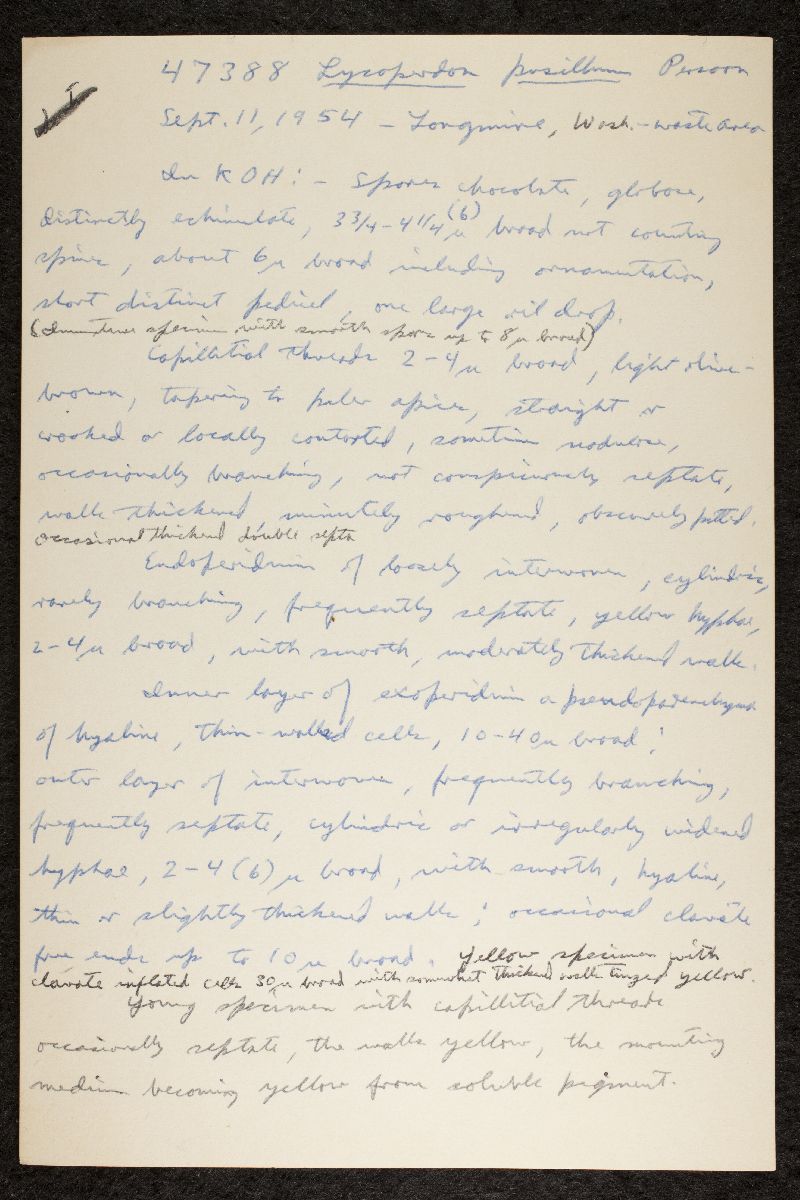 47388 Lycoperdon pusillum Persoon
Sept. 11, 1954 - Longmire, Wash. - waste area
In KOH: - Spores chocolate, globose,
distinctly echinulate, 3 3/4 - 4 1/4 (6) µ broad not counting
spines, about 6 µ broad including ornamentation,
short distinct pedicel, one large oil drop.
(Immature specimen with smooth spores up to 8 µ broad)
Capillitial threads 2-4 µ broad, light olive-
brown, tapering to paler apices, straight or
crooked or locally contorted, sometimes nodulose,
occasionally branching, not conspicuously septate,
walls thickened, minutely roughened, obscurely pitted.
occasional thickened double septa
Endoperidium of loosely interwoven, cylindric,
rarely branching, frequently septate, yellow hyphae,
2-4 µ broad, with smooth, moderately thickened walls.
Inner layer of exoperidium a pseudoparenchyma
of hyaline, thin-walled cells, 10-40 µ broad;
outer layer of interwoven, frequently branching,
frequently septate, cylindric or irregularly widened
hyphae, 2-4 (6) µ broad, with smooth, hyaline,
thin or slightly thickened walls; occasional clavate
free ends up to 10 µ broad. Yellow specimen with
clavate inflated cells 30 µ broad with somewhat thickened walls tinged yellow.
Young specimen with capillitial threads
occasionally septate, the walls yellow, the mounting
medium becoming yellow from soluble pigment.